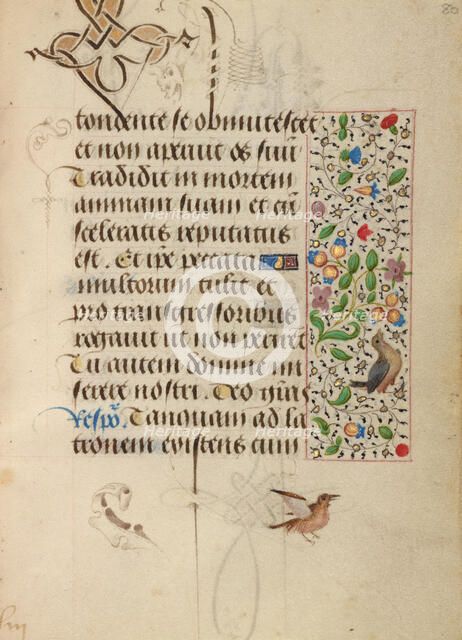 80
tondente se obmutescet
et non aperuit os suū
Tradidit in mortem
animam suam et cū
sceleratis reputatus
est. Et ipse peccata
multorum tulit et
pro transgressoribus
rogauit ut non perirēt
Tu autem domine mi
serere nostri. Deo grās
Respō. Tanquam ad la
tronem existens cum
Heritage
Heritage
Heritage
Heritage
Heritage
Heritage